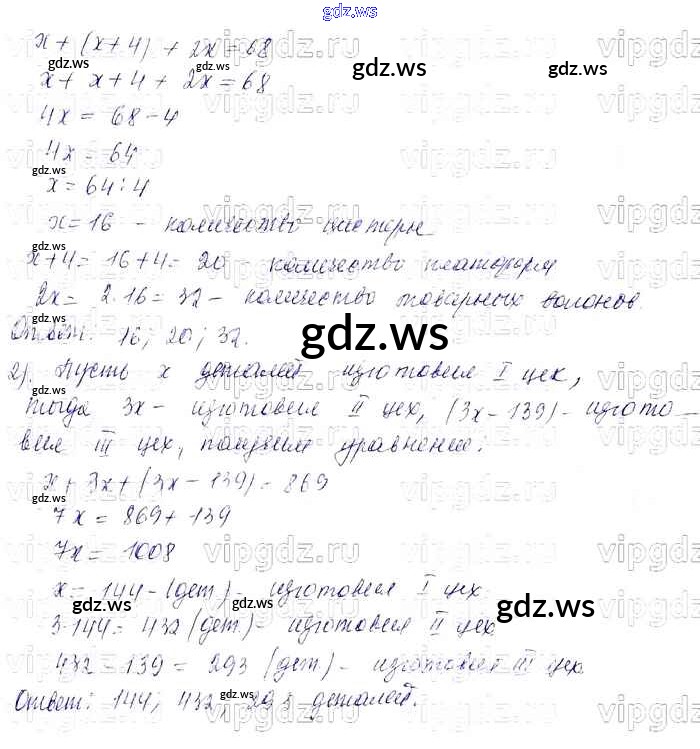 gdz.ws
x + (x+4) + 2x = 68
x + x + 4 + 2x = 68
4x = 68 - 4
4x = 64
x = 64 : 4
x = 16 - количество цистерн
x+4 = 16+4 = 20 - количество платформ
2x = 2·16 = 32 - количество товарных вагонов.
Ответ: 16; 20; 32.
2). Пусть x деталей изготовил I цех,
тогда 3x - изготовил II цех, (3x - 139) - изгото-
вил III цех, получим уравнение:
x + 3x + (3x - 139) = 869
7x = 869 + 139
7x = 1008
x = 144 - (дет) - изготовил I цех
3·144 = 432 (дет) - изготовил II цех
432 - 139 = 293 (дет) - изготовил III цех.
Ответ: 144; 432; 293 деталей.